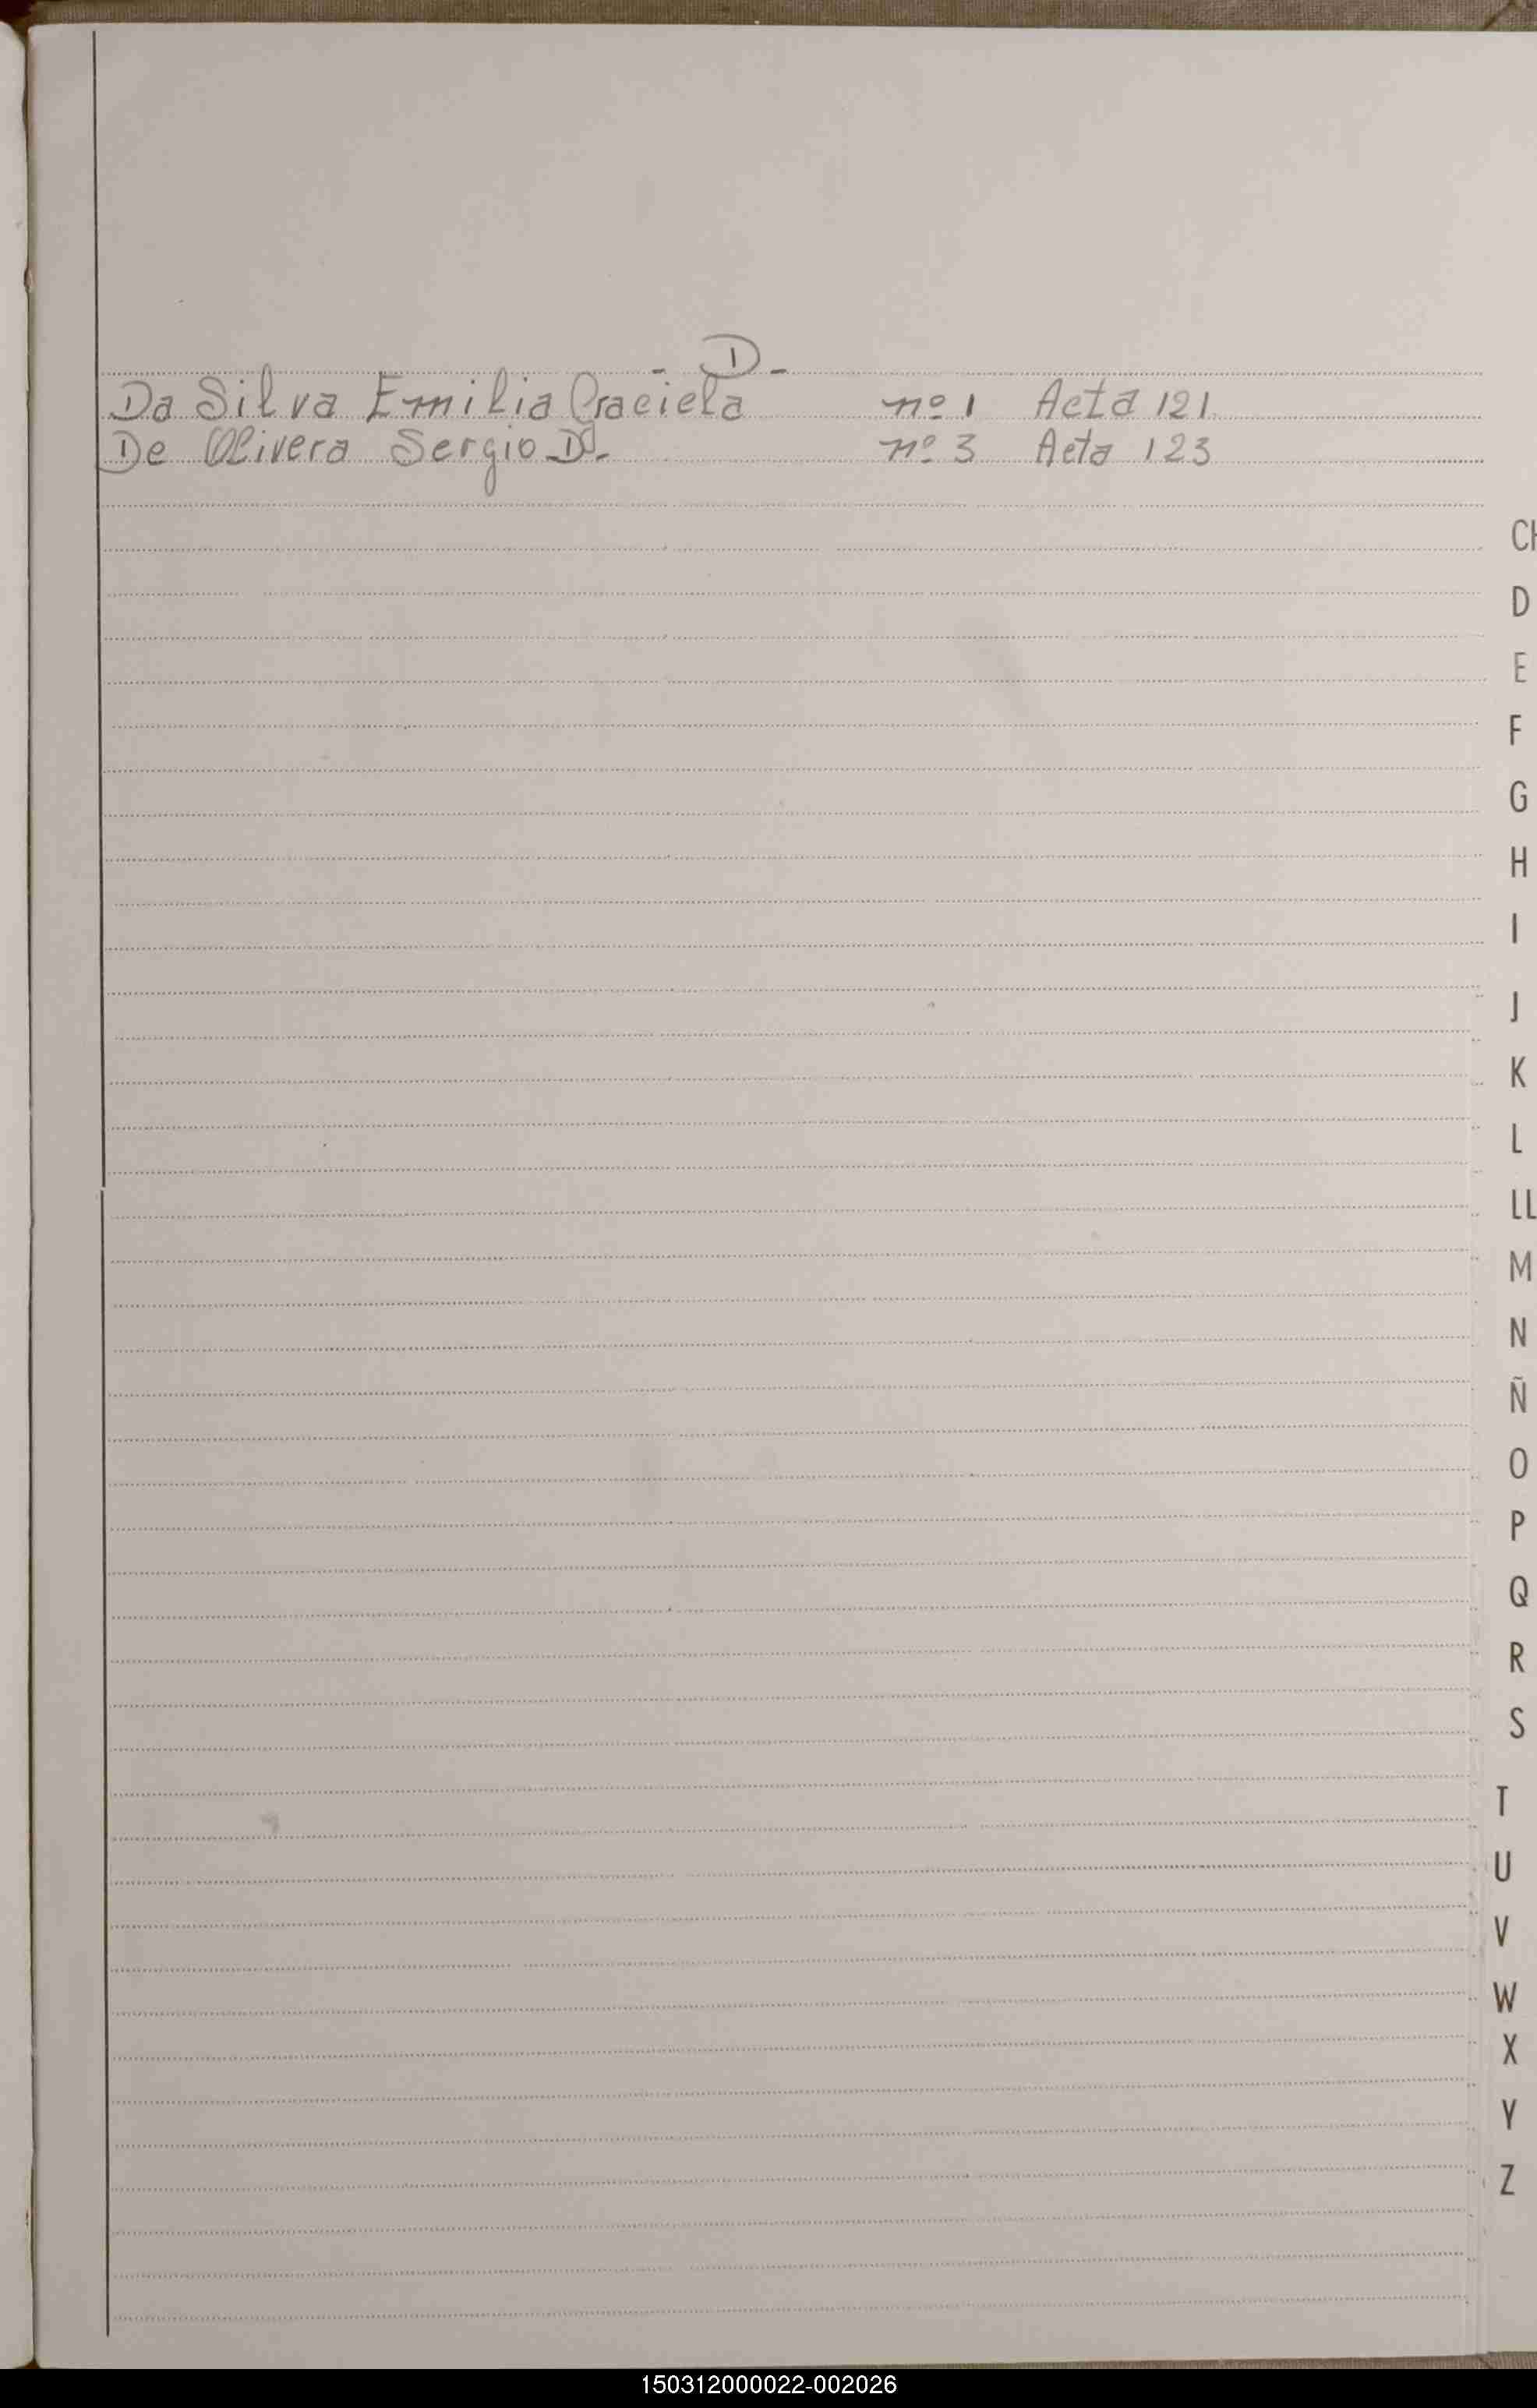 - D -
Da Silva Emilia Graciela nº 1 Acta 121
De Olivera Sergio D. nº 3 Acta 123
CH
D
E
F
G
H
I
J
K
L
LL
M
N
Ñ
O
P
Q
R
S
T
U
V
W
X
Y
Z
150312000022-002026